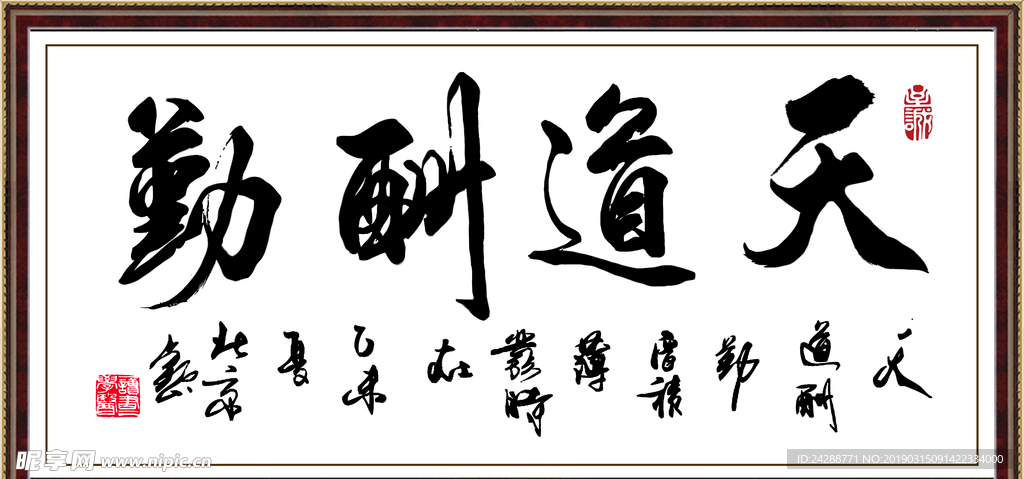 天道酬勤
天道酬勤厚积薄发时在乙未夏北京
昵享网 www.nipic.cn
ID:24288771 NO:20190315091422334000